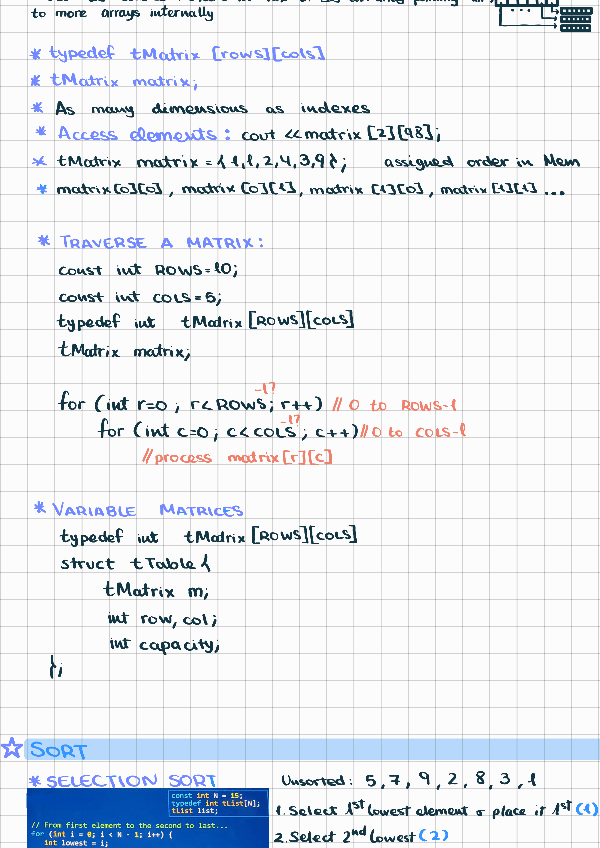 to more arrays internally
* typedef tMatrix [rows][cols]
* tMatrix matrix;
* As many dimensions as indexes
* Access elements: cout << matrix[2][98];
* tMatrix matrix = {1,1,2,4,3,9}; assigned order in Mem
* matrix[0][0], matrix[0][1], matrix[1][0], matrix[1][1] ...
* TRAVERSE A MATRIX:
const int ROWS=10;
const int COLS=5;
typedef int tMatrix [ROWS][COLS]
tMatrix matrix;
-1?
for (int r=0; r<ROWS; r++) // 0 to ROWS-1
-1?
for (int c=0; c<COLS; c++) // 0 to COLS-1
// process matrix[r][c]
* VARIABLE MATRICES
typedef int tMatrix [ROWS][COLS]
struct tTable {
tMatrix m;
int row, col;
int capacity;
};
SORT
* SELECTION SORT
const int N = 15;
typedef int tList[N];
tList list;
// From first element to the second to last...
for (int i = 0; i < N - 1; i++) {
int lowest = i;
Unsorted: 5,7,9,2,8,3,1
1. Select 1st lowest element & place it 1st (1)
2. Select 2nd lowest (2)